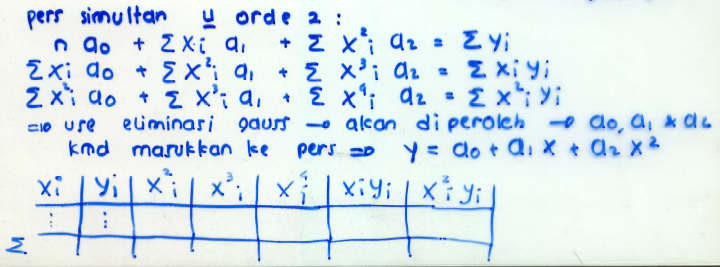 pers simultan u orde 2 :
n a₀ + Σ xᵢ a₁ + Σ x²ᵢ a₂ = Σ yᵢ
Σ xᵢ a₀ + Σ x²ᵢ a₁ + Σ x³ᵢ a₂ = Σ xᵢ yᵢ
Σ x²ᵢ a₀ + Σ x³ᵢ a₁ + Σ x⁴ᵢ a₂ = Σ x²ᵢ yᵢ
⇒ use eliminasi gauss → akan diperoleh → a₀, a₁ & a₂
kmd masukkan ke pers ⇒ y = a₀ + a₁ x + a₂ x²
xᵢ | yᵢ | x²ᵢ | x³ᵢ | x⁴ᵢ | xᵢyᵢ | x²ᵢ yᵢ
⋮ | ⋮
Σ